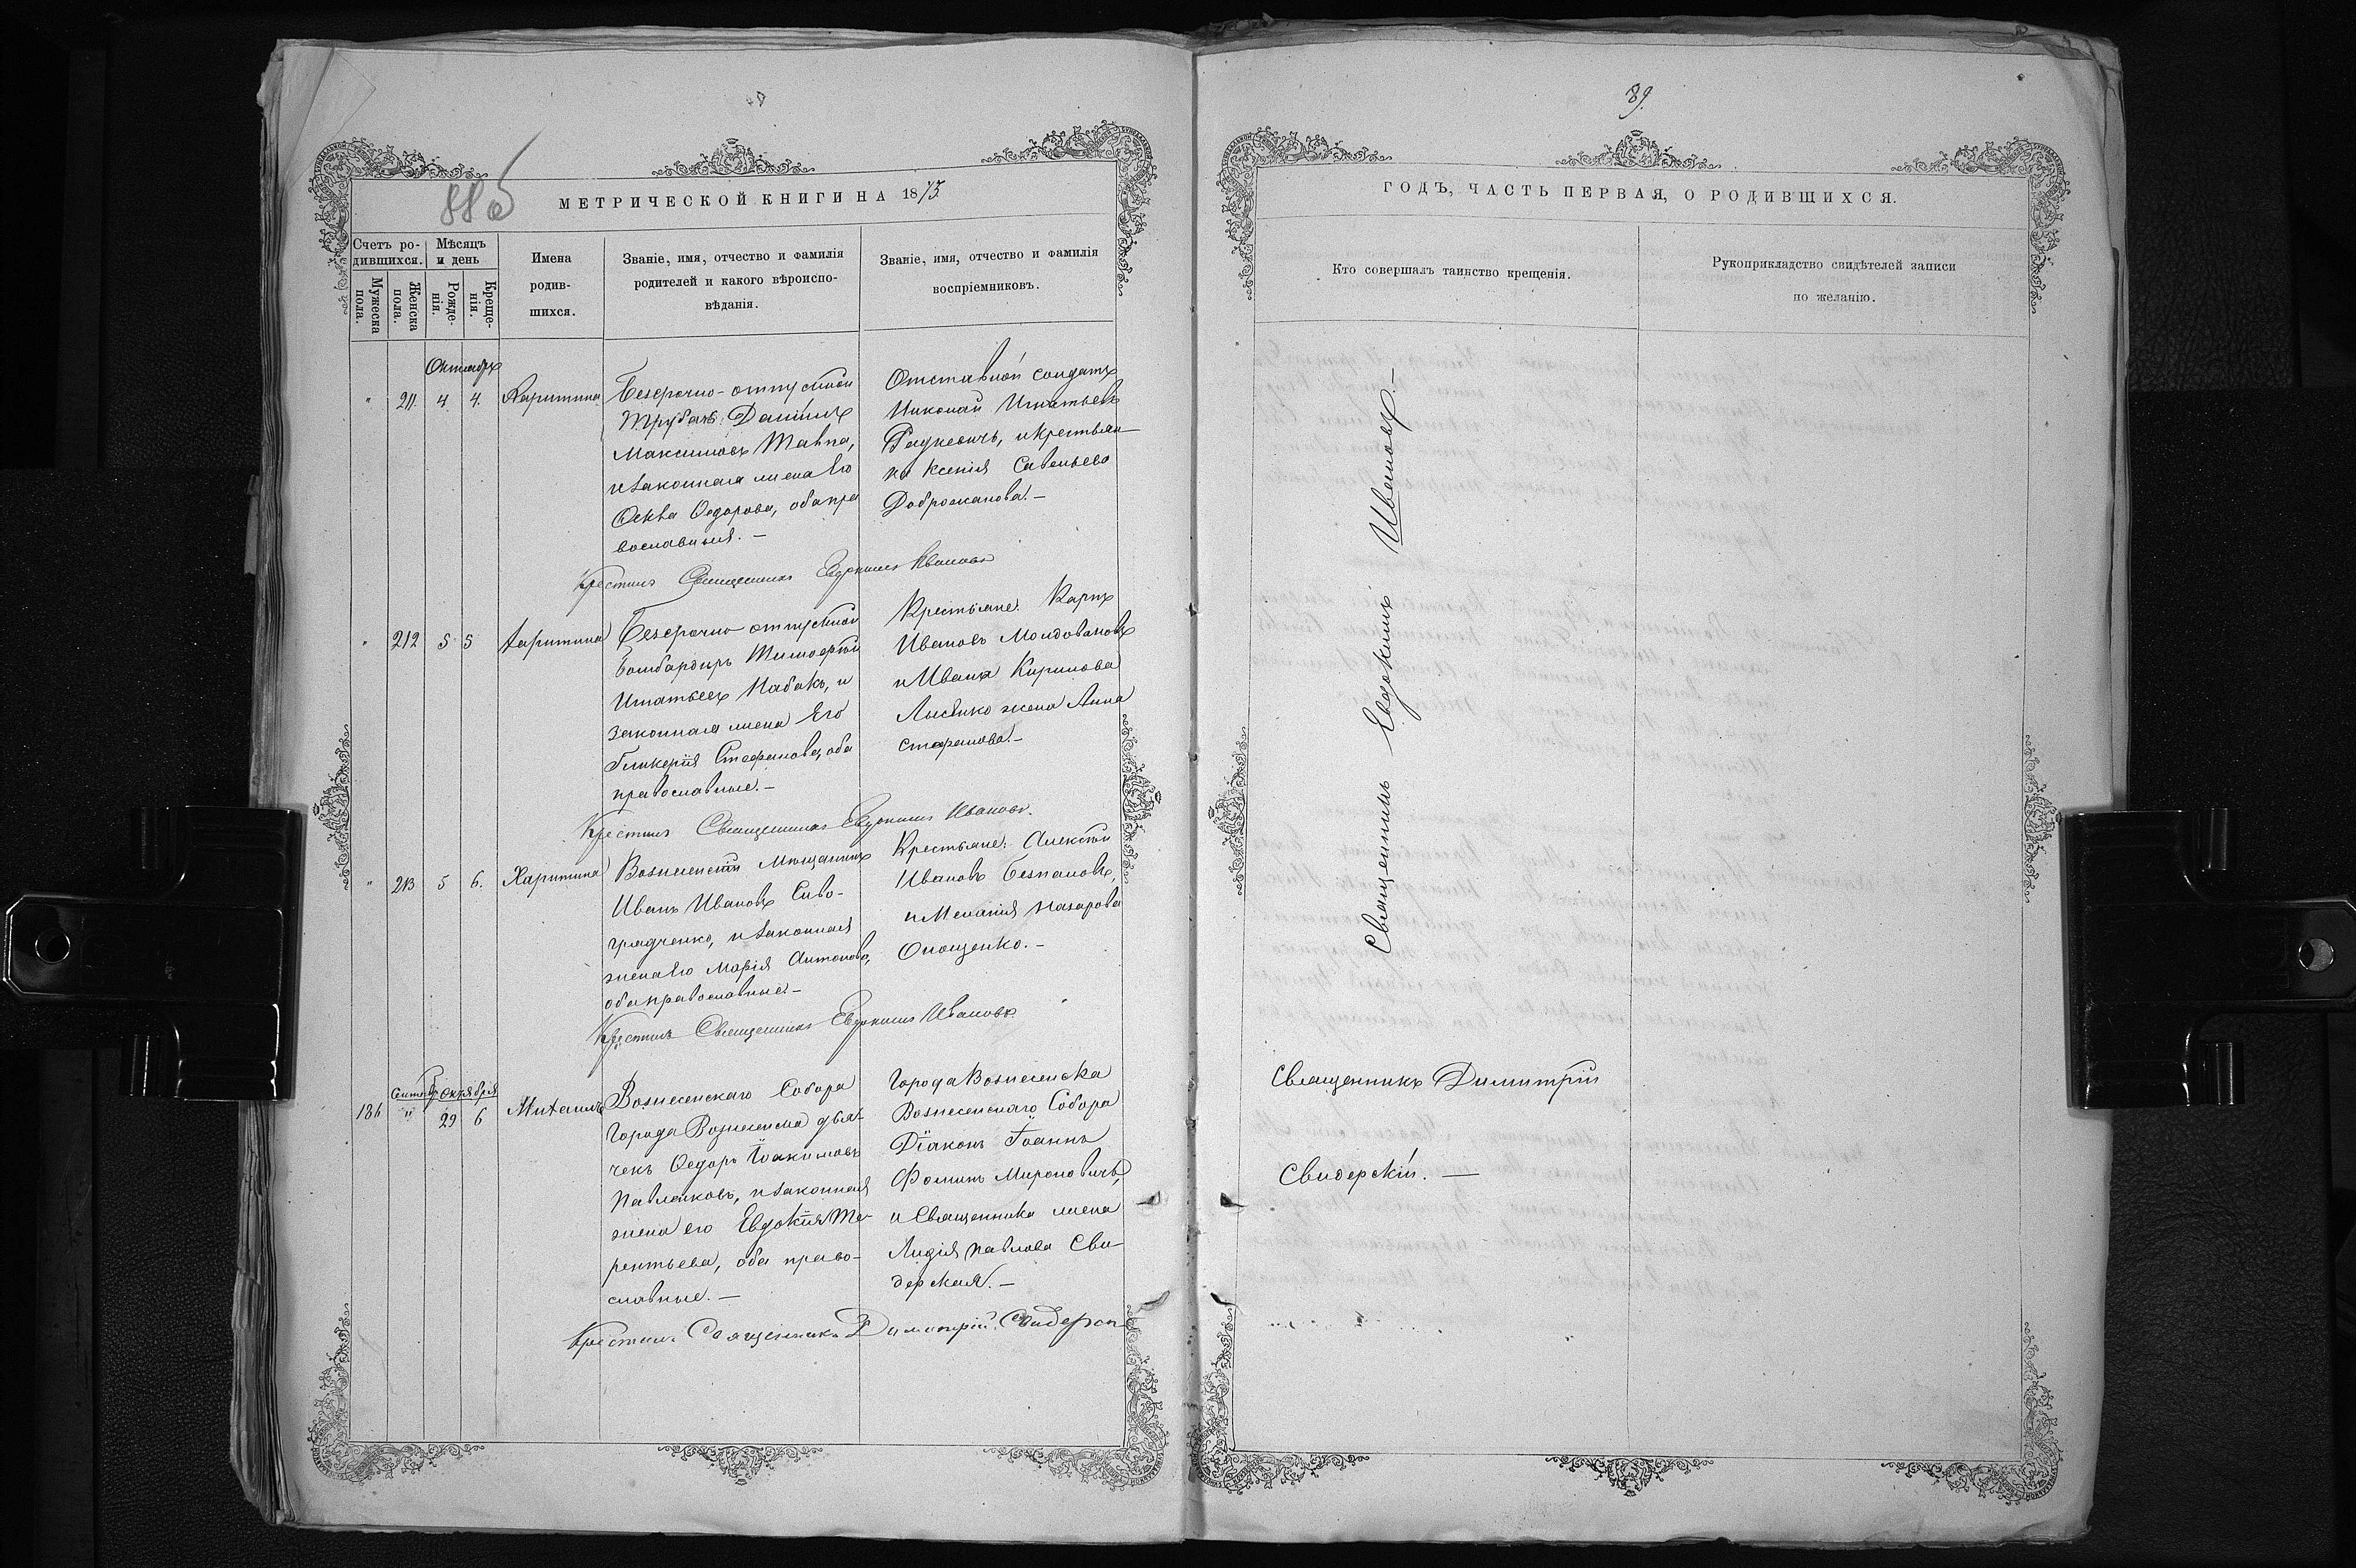 89.
88б
МЕТРИЧЕСКОЙ КНИГИ НА 1873
Счетъ ро-
дившихся.
Мѣсяцъ
и день
Мужеска
пола.
Женска
пола.
Рожде-
нія.
Креще-
нія.
Имена
родив-
шихся.
Званіе, имя, отчество и фамилія
родителей и какого вѣроиспо-
вѣданія.
Званіе, имя, отчество и фамилія
воспріемниковъ.
Октябрь
" 211 4 4. Харитина
Безсрочно-отпускной
трубачъ Даніилъ
Максимовъ
и законная жена его
Ѳедорова, оба пра
вославныя. —
Отставной солдатъ
Николай Игнатьевъ
Радкевичъ, и крестьян-
ка Ксенія Савельева
Доброжанова. —
Крестилъ Священникъ Евдокимъ Ивановъ
" 212 5 5 Харитина
Безсрочно отпускной
бомбардиръ Тимоѳей
Игнатьевъ Набакъ, и
законная жена его
Гликерія Стефанова, оба
православные. —
Крестьяне: Карпъ
Ивановъ Молдовановъ
и Ивана Кирилова
Лысенко жена Анна
Стефанова. —
Крестилъ Священникъ Евдокимъ Ивановъ.
" 213 5 6. Харитина
Вознесенскій Мѣщанинъ
Иванъ Ивановъ Сиво-
градченко, и законная
жена его Марія Антонова,
оба православные. —
Крестьяне: Алексѣй
Ивановъ Безпаловъ,
и Меланія Назарова
Онощенко. —
Крестилъ Священникъ Евдокимъ Ивановъ.
Сентябр Октября
186 " 29 6 Михаилъ
Вознесенскаго Собора
города Вознесенска дья-
чекъ Ѳедоръ Іоакимовъ
Павленковъ, и законная
жена его Евдокія Те-
рентьева, оба право-
славные. —
Города Вознесенска
Вознесенскаго Собора
Діаконъ Іоаннъ
Фоминъ Мироновичъ,
и Священника жена
Лидія Павлова Сви-
дерская. —
Крестилъ Священникъ Димитрій Свидерск
ГОДЪ, ЧАСТЬ ПЕРВАЯ, О РОДИВШИХСЯ.
Кто совершалъ таинство крещенія.
Рукоприкладство свидѣтелей записи
по желанію.
Священникъ Евдокимъ Ивановъ. —
Священникъ Димитрій
Свидерскій. —